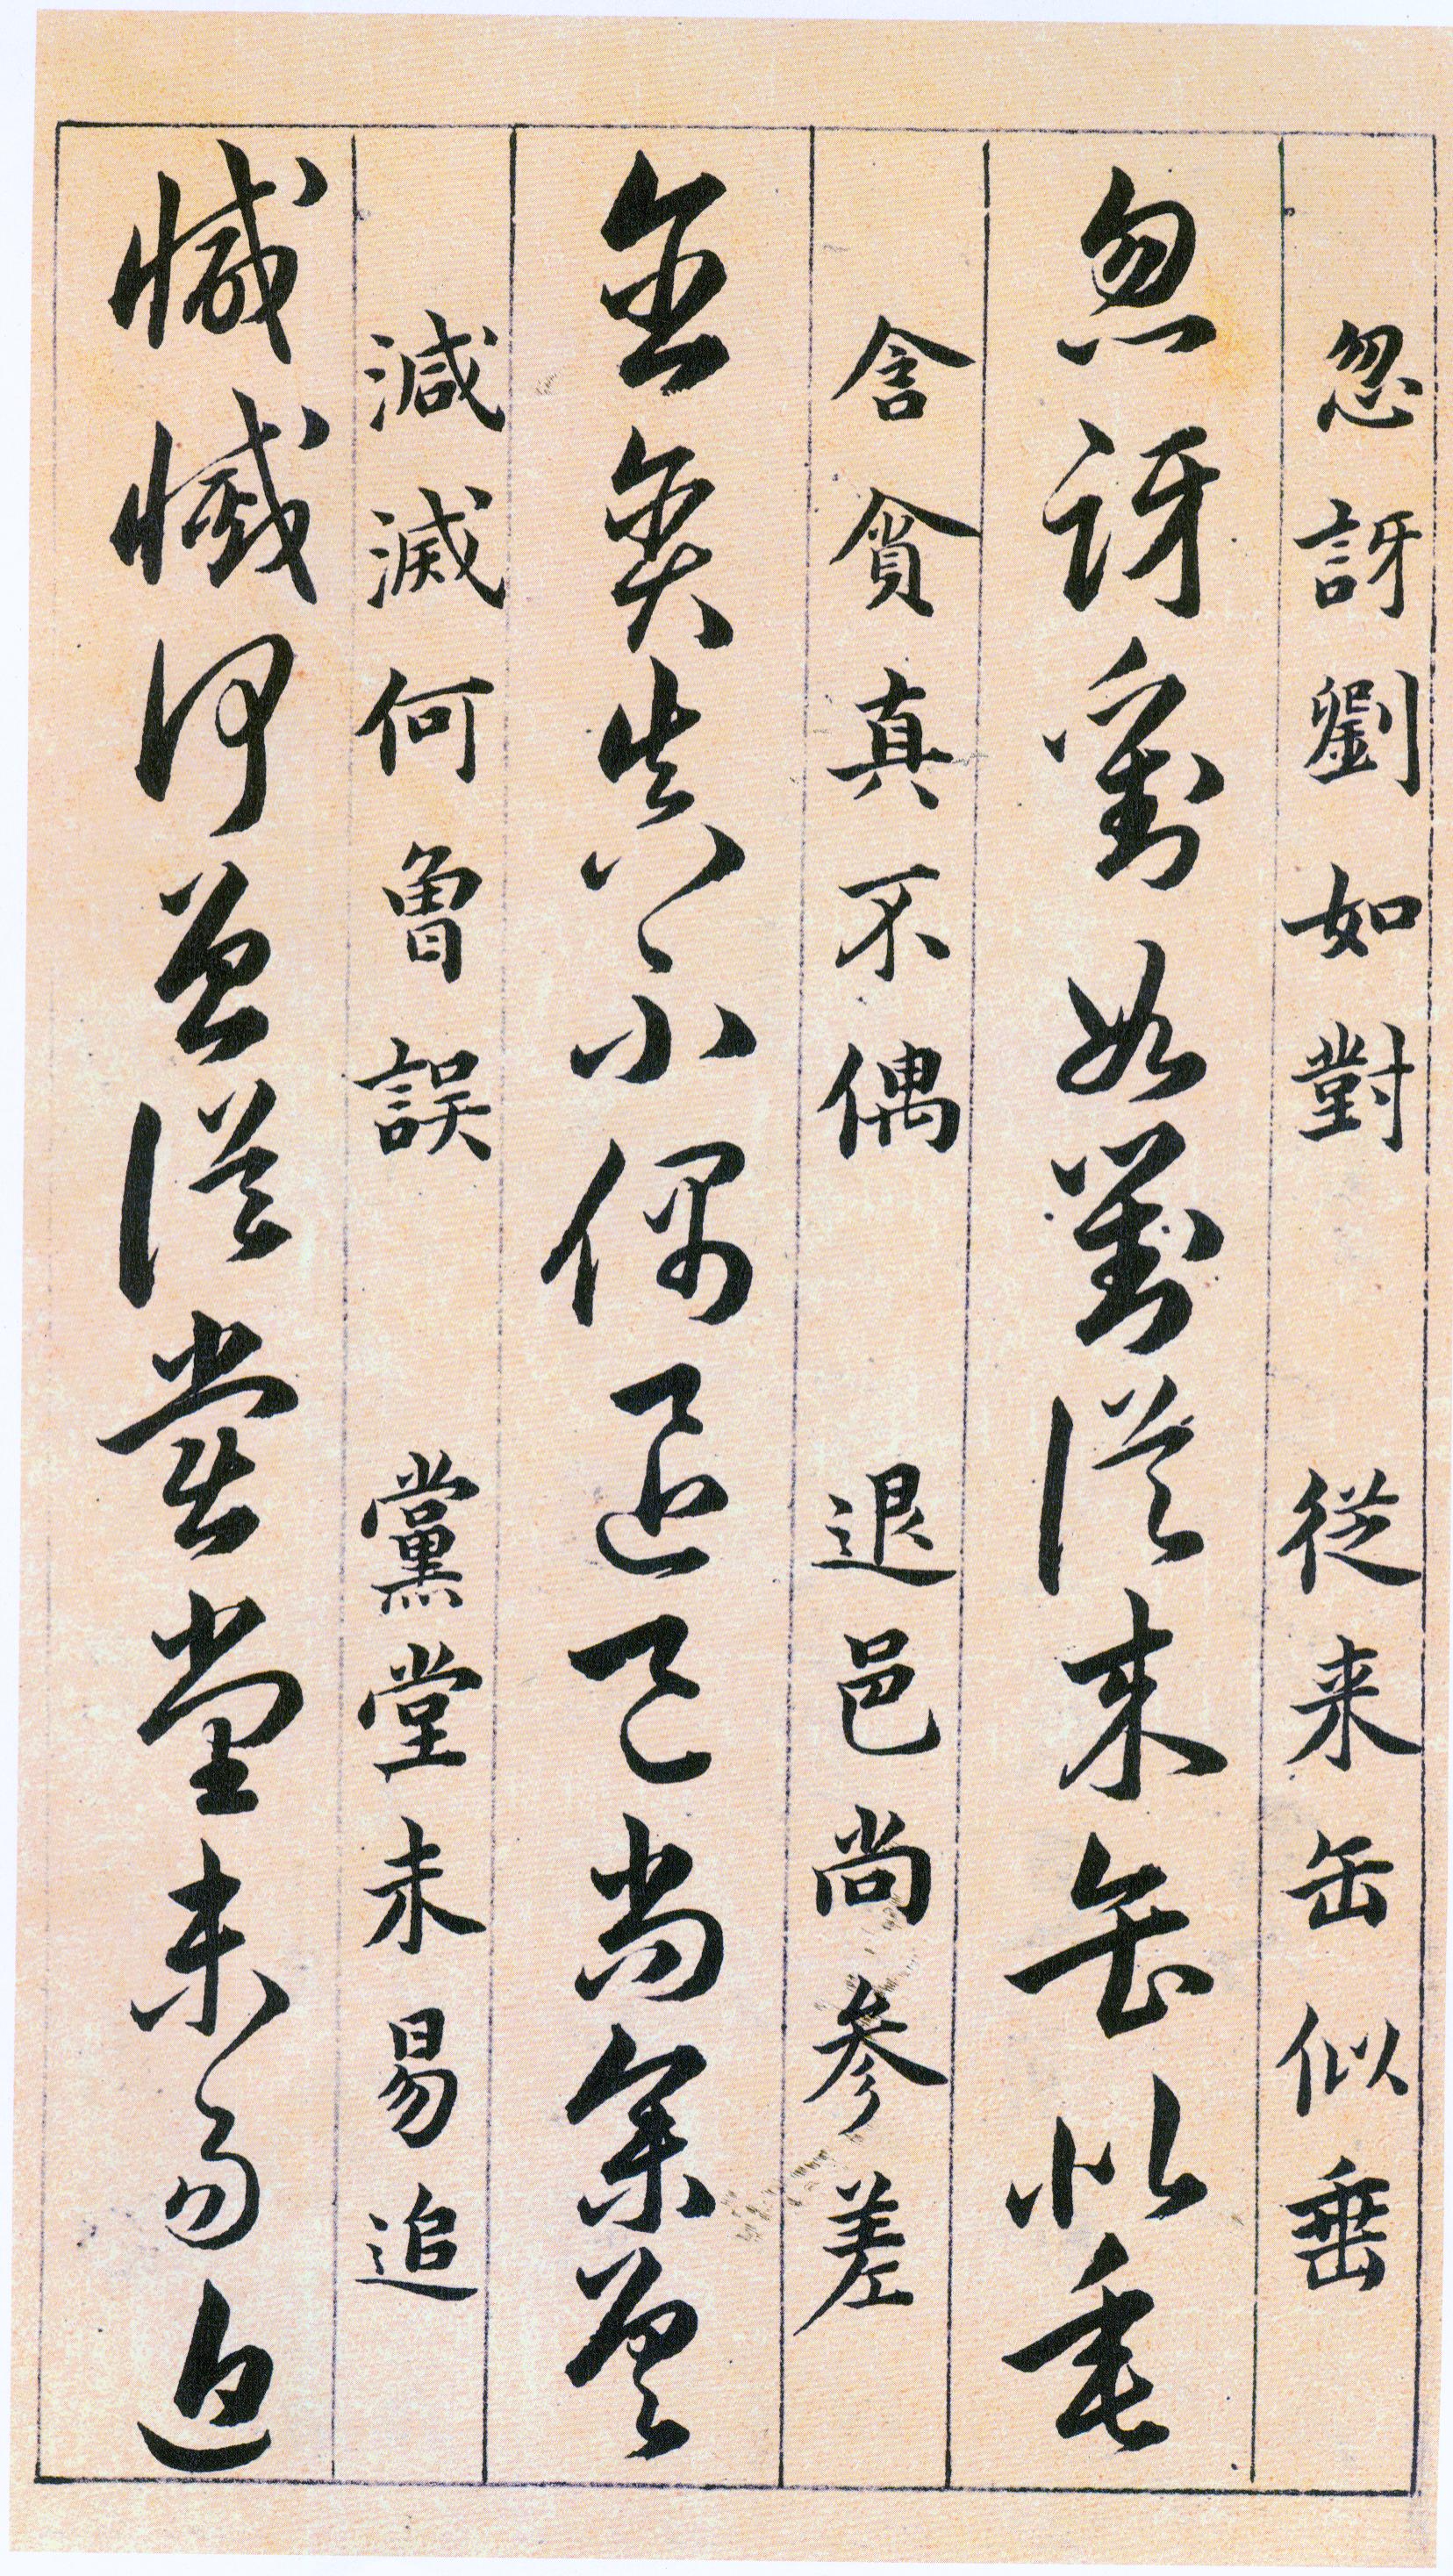 忽訝劉如對　從来缶似垂
忽訝劉如對從来缶似垂
含貪真不偶　退邑尚参差
含貪真不偶退邑尚参差
減滅何曾誤　黨堂未易追
減滅何曾誤黨堂未易追